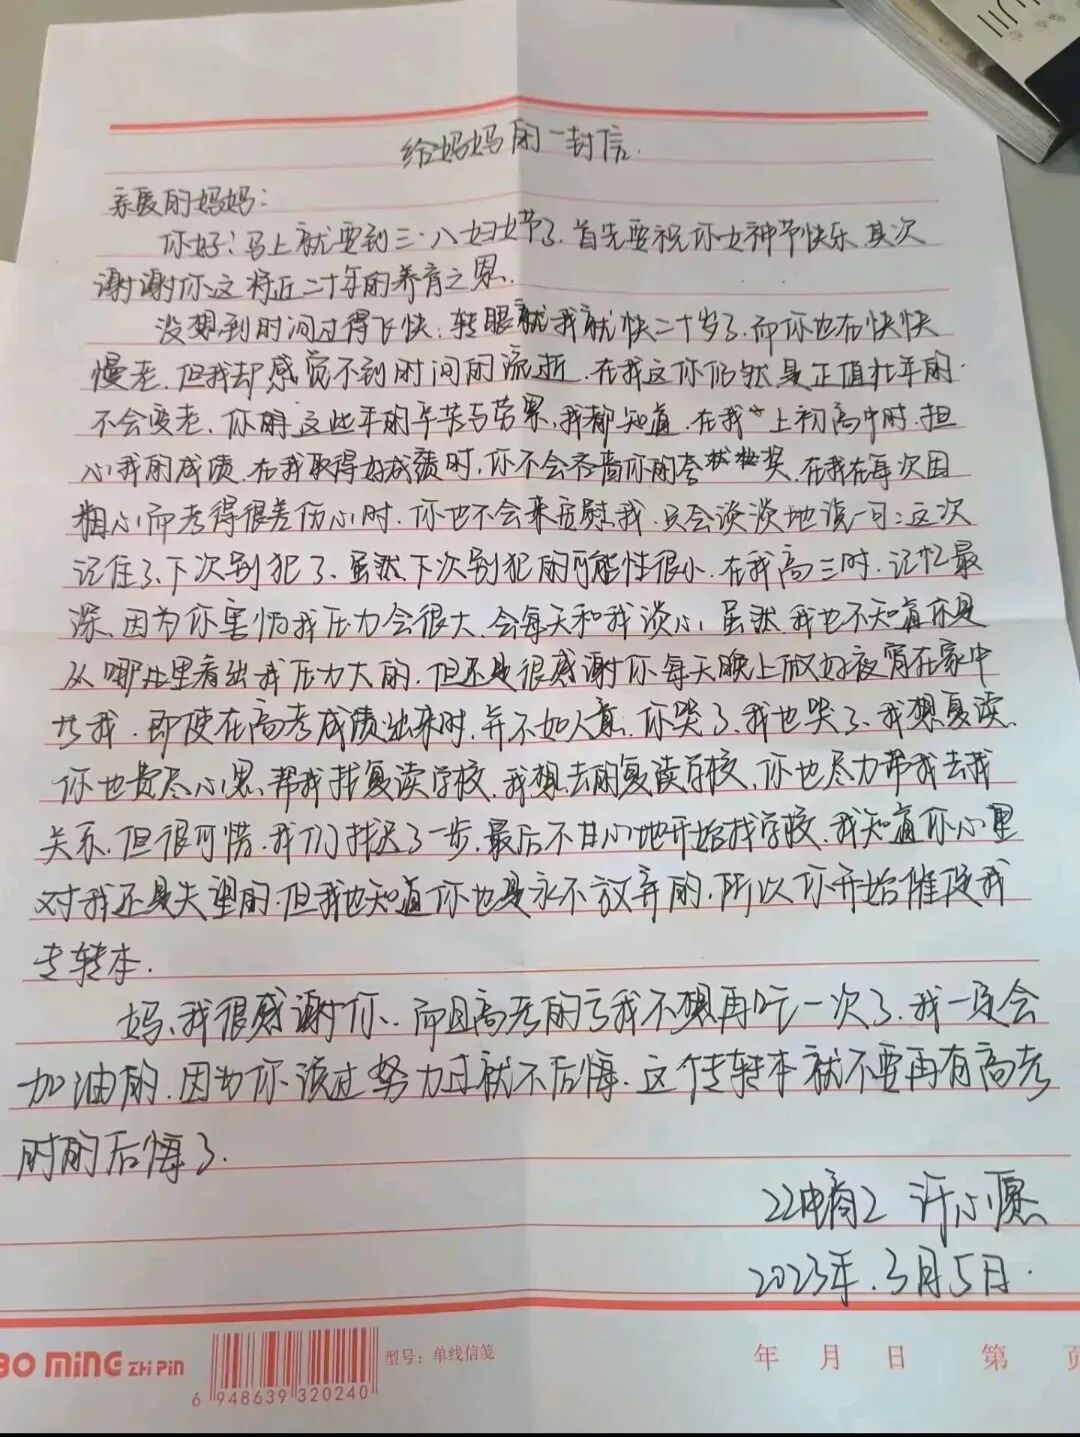 给妈妈的一封信.
亲爱的妈妈:
你好!马上就要到三·八妇女节了.首先要祝你女神节快乐.其次
谢谢你这将近二十年的养育之恩.
没想到时间过得飞快.转眼就我就快二十岁了.而你也在快快
慢老.但我却感觉不到时间的流逝.在我这你仍然是正值壮年的.
不会变老.你的这些年的辛苦与劳累,我都知道.在我上初高中时.担
心我的成绩.在我取得好成绩时,你不会吝啬你的夸奖.在我在每次因
粗心而考得很差伤心时.你也不会来安慰我.只会淡淡地说一句:这次
记住了、下次别犯了.虽然下次别犯的可能性很小.在我高三时.记忆最
深、因为你害怕我压力会很大.会每天和我谈心.虽然我也不知道你是
从哪里看出我压力大的.但还是很感谢你每天晚上做好夜宵在家中
等我.即使在高考成绩出来时.并不如人意.你哭了.我也哭了.我想复读.
你也费尽心思帮我找复读学校.我想去的复读学校.你也尽力帮我去找
关系.但很可惜.我们找迟了一步.最后不甘心地开始找学校.我知道你心里
对我还是失望的.但我也知道你也是永不放弃的.所以你开始催促我
专转本.
妈、我很感谢你.而且高考的亏我不想再吃一次了.我一定会
加油的.因为你说过努力过就不后悔.这个专转本就不要再有高考
时的后悔了.
22电商2 许小愿
2023年.3月5日.
BO MING ZHI PIN
6 948639 320240
型号:单线信笺
年 月 日 第 页